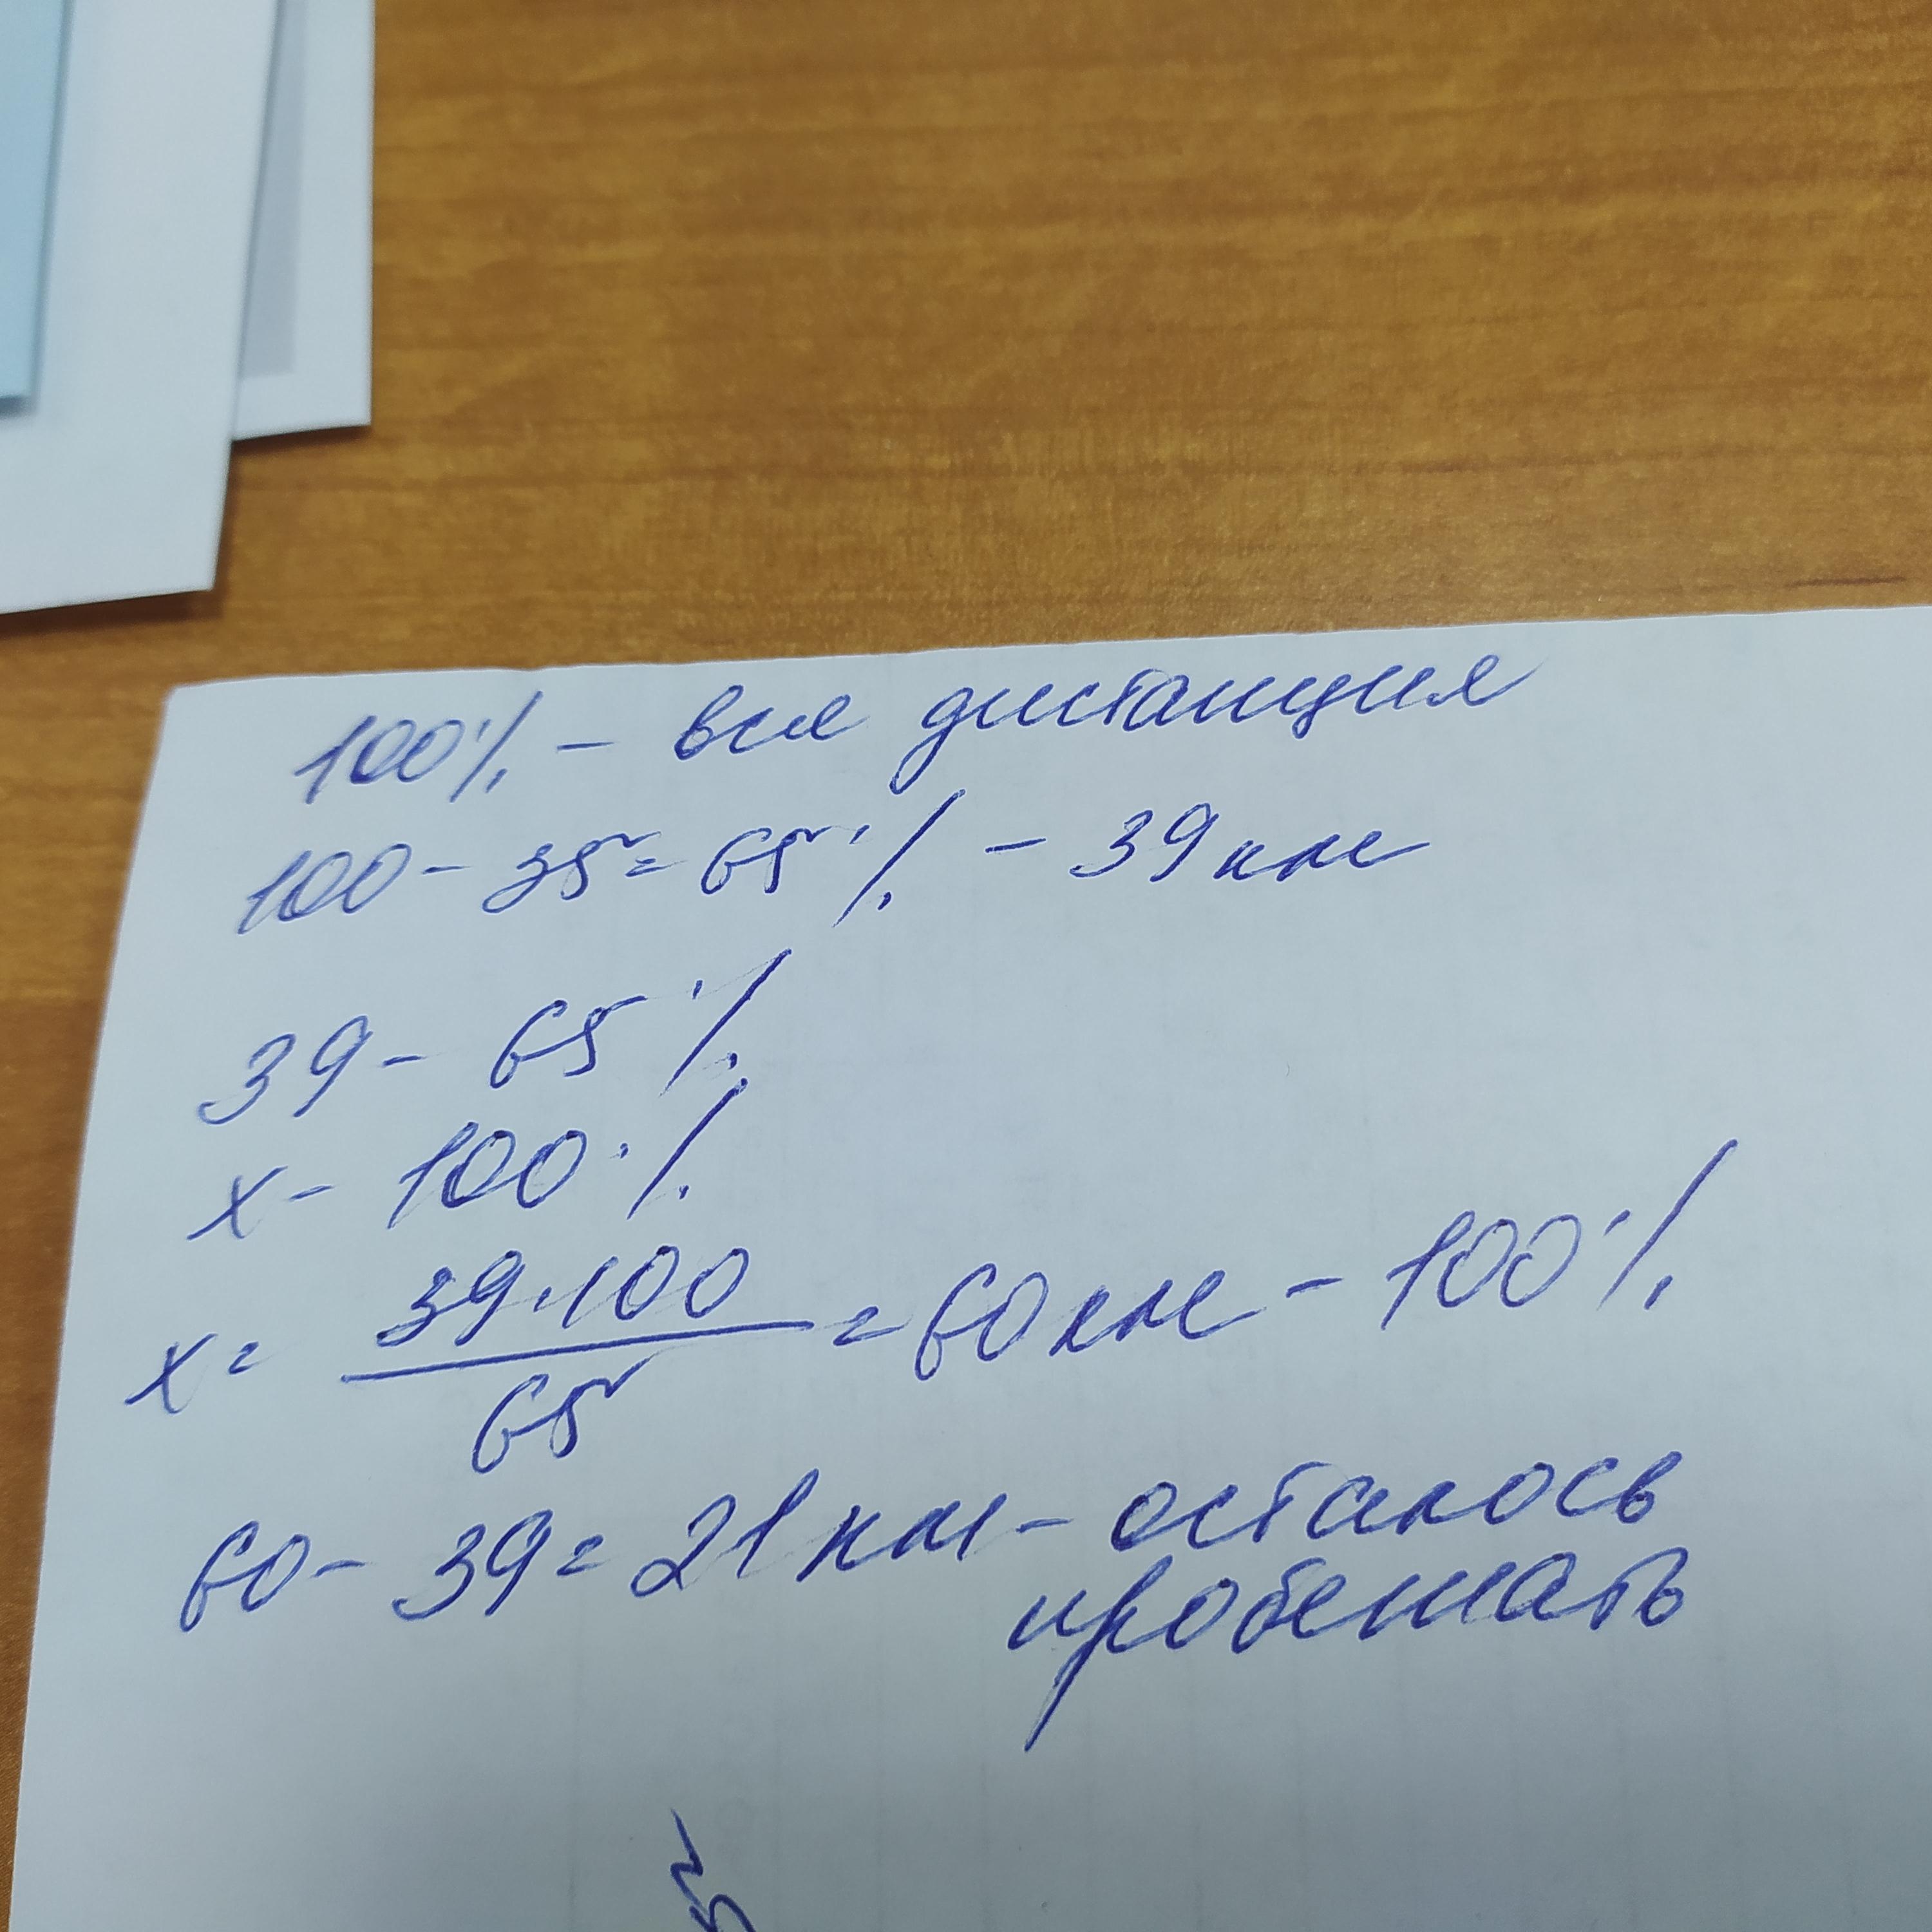 100% - вся дистанция
100 - 35 = 65% - 39 км
39 - 65%
х - 100%
х = 39·100 / 65 = 60 км - 100%
60 - 39 = 21 км - осталось
пробежать
5